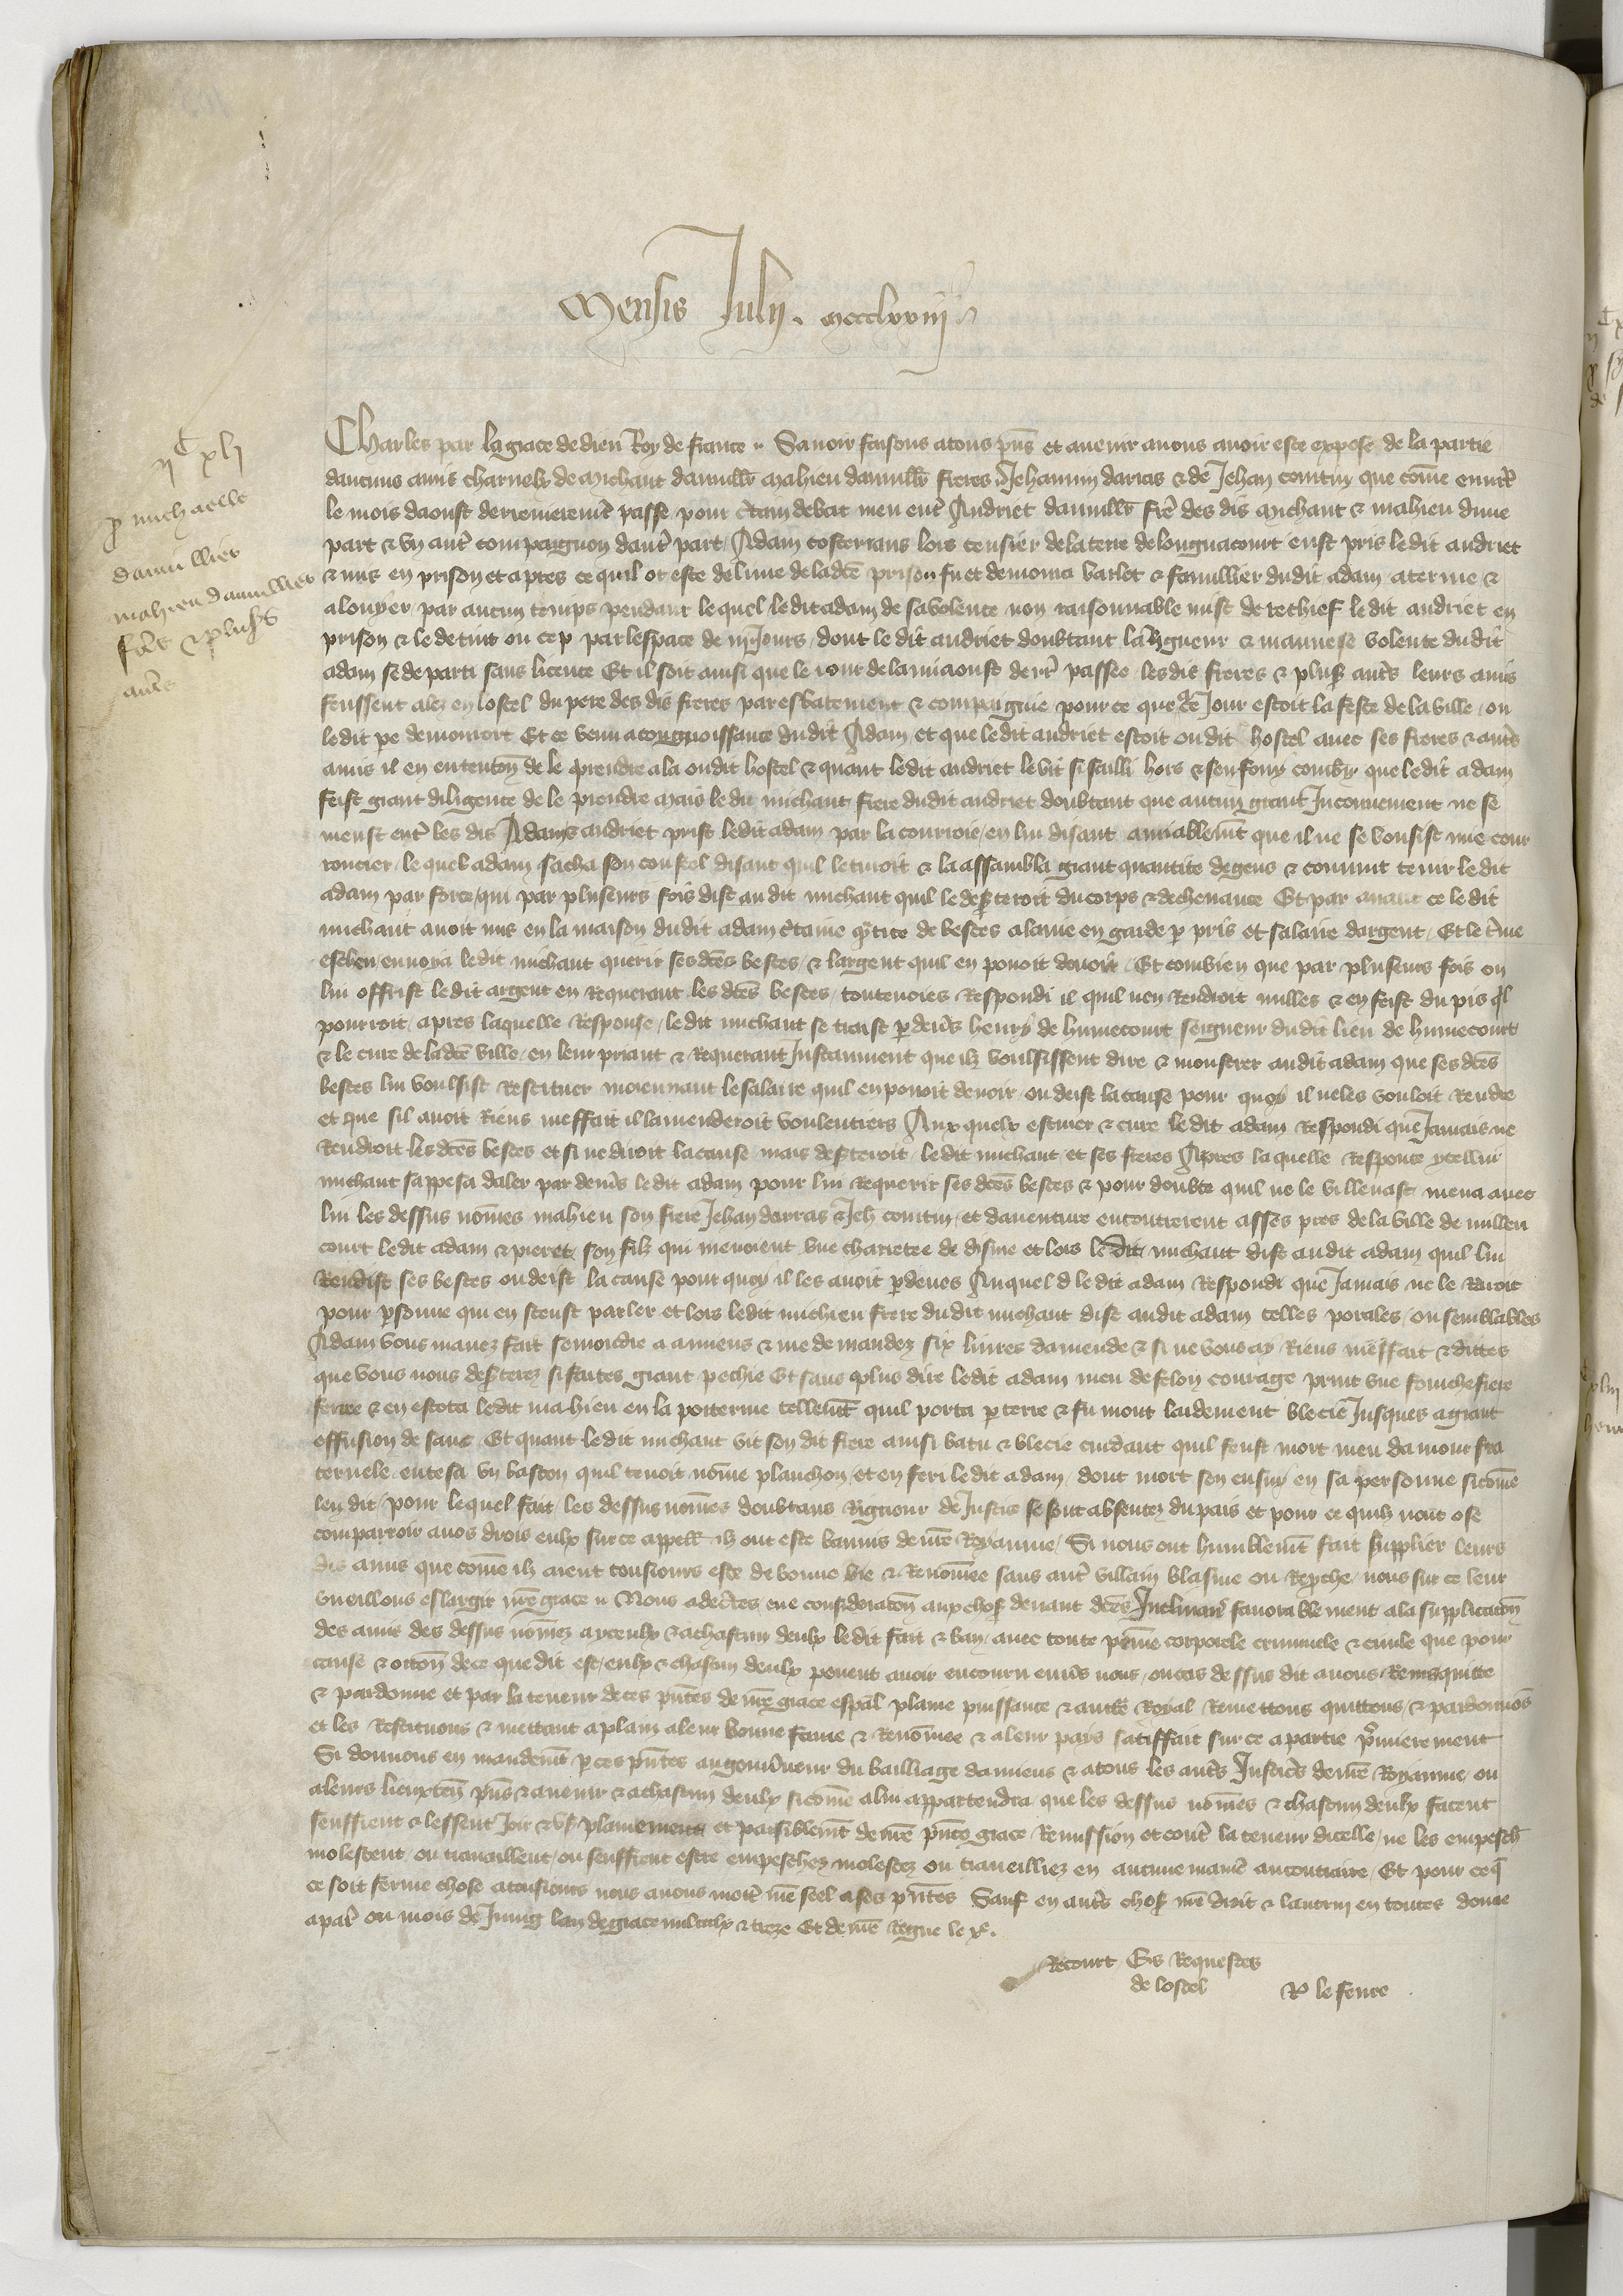 Mensis Julii . mccclxxiij
ijC xlj
p michaelle
daiuillier
mahieu daiuillier
frat & pluribꝰ
aliis
Charles par la grace de dieu Roy de france . Sauoir faisons a tous pñs et auenir auons auoir este expose de la partie
daucuns amis charnelx de Michaut daiuilłr Mahieu daiuilłr freres Jehannin darras & de Jehan cointin que cõme enuirõ
le mois daoust derrenieremẽt passe pour c̃tain debat meu ent̃ Andriet daiuilłr fr̃e des dis Michaut & mahieu dune
part & vn aut̃ compaignon daut̃ part Adam costerans lors censier de la terre de longuacourt eust pris ledit andriet
& mis en prison et apres ce quil ot este deliure de ladc̃e prison fu et demoura varlet & familier dudit adam a terme &
a louyer par aucun temps pendant lequel ledit adam de sa volente non raisonnable mist de rechief ledit andriet en
prison & le detint ou cep par lespace de iij Jours dont le dit andriet doubtant la Rigueur & mauuese volente dudit
adam se departi sans licence Et il soit ainsi que le iour de la miaoust derr̃ passee lesdis freres & plusʳ aut̃s leurs amis
feussent alez en lostel du pere des dis freres par esbatement & compaignie pour ce que ce Jour estoit la feste de la ville ou
ledit pe demouroit Et ce venu a congnoissance dudit Adam et que ledit andriet estoit oudit hostel auec ses freres & aut̃s
amis il en entencõn de le prendre ala oudit hostel & quant ledit andriet le vit si sailli hors & sen fouy combñ que ledit adam
feist grant diligence de le prendre Mais ledit michaut frere dudit andriet doubtant que aucun grant Inconuenient ne se
meust ent̃ les dis Adam & andriet prist ledit adam par la courroie en lui disant amiablemt̃ que il ne se voulsist mie cour
roucier lequel adam sacha son coustel disant quil le turoit & la assambla grant quantite de gens & conuint tenir le dit
adam par force qui par pluseurs fois dist au dit michaut quil le desꝑteroit du corps & de cheuance Et par auant ce le dit
michaut auoit mis en la maison dudit adam c̃taine qᵃtite de bestes a laine en garde p pris et salaire dargent Et le t̃me
escheu enuoia ledit michaut querir ses dc̃es bestes & largent quil en pouoit deuoir Et combien que par pluseurs fois on
lui offrist le dit argent en Requerant les dc̃es bestes toutenoies Respondi il quil nen Rendroit nulles & en feist du pis qͥl
pourroit apres laquelle Response ledit michaut se traist p deũs henry de humecourt seigneur dudit lieu de humecourt
& le cure de ladc̃e ville en leur priant & Requerant Instaument que ilz voulsissent dire & monstrer audit adam que ses dc̃es
bestes lui voulsist Restituer moiennant le salaire quil en pouoit deuoir ou deist la cause pour quoy il ne les vouloit Rendre
et que sil auoit Riens meffait il lamenderoit voulentiers Aux quelx escuier & cure le dit adam Respondi que Jamais ne
Rendroit les dc̃es bestes et si ne diroit la cause mais desꝑteroit ledit michaut et ses freres Apres la quelle Response ycellui
michaut sappesa daler par deuũs ledit adam pour lui Requerir ses dc̃es bestes & pour doubte quil ne le villenast mena auec
lui les dessus nõmes mahieu son frere Jehan darras & Jeh cointin et dauenture encontrerent asses pres de la ville de millen
court ledit adam & pieret son filz qui menoient vne charretee de disme et lors ledit michaut dist audit adam quil lui
Rendist ses bestes ou deist la cause pour quoy il les auoit p deues Auquel d le dit adam Respondi que Jamais ne le Raroit
pour psonne qui en sceust parler et lors ledit mahieu frere dudit michaut dist audit adam telles paroles ou semblables
Adam vous mauez fait semondre a amiens & me demandez six liures damende & si ne vous ay Riens meffait & dittes
que vous nous desꝑterez si faites grant pechie Et sans plus dire ledit adam meu de felon courage print vne fourchefiere
ferree & en estoca ledit mahieu en la poiterine tellemt̃ quil porta p terre & fu mout laidement blecie Jusques a grant
effusion de sanc Et quant ledit michaut vit son dit frere ainsi batu & blecie cuidant quil feust mort meu damour fra
ternele entesa vn baston quil tenoit nõme planchon et en feri ledit adam dont mort sen ensuy en sa personne sicõme
len dit pour lequel fait les dessus nõmes doubtans Rigueur de Justice se sont absentez du pais et pour ce quilz nont ose
comparroir a nos drois eulx sur ce appellẽ ilz ont este bannis de nr̃e Royaume Si nous ont humblemt̃ fait supplier leurs
dis amis que cõme ilz aient tousiours este de bonne vie & Renõmee sans aut̃ villain blasme ou Repche nous sur ce leur
vueillons eslargir nr̃e grace . Nous adec̃tes eue consideracõn aux chosʳ deuant dc̃es Inclinanˢ fauorablement a la supplicacõn
des amis des dessus nõmez a yceulx & a chascun deulx ledit fait & ban auec toute peine corporele criminele & ciuile que pour
cause & occõn de ce que dit est eulx & chascun deulx peuent auoir encouru enũs nous ou cas dessus dit auons Remis quitte
& pardonne et par la teneur de ces pñtes de nr̃e grace espãl plaine puissance & auctẽ Royal Remettons quittons & pardonnõs
et les Restituons & mettant a plain a leur bonne fame & Renõmee & a leur pays satiffait sur ce a partie pͥmierement
Si donnons en mandemt̃ p ces pñtes au gouũneur du bailliage damiens & a tous les aut̃s Justic̃es de nr̃e Royaume ou
a leurs lieuxteñ pñs & auenir & a chascun deulx sicõme a lui appartendra que les dessus nõmes & chascun deulx facent
seuffrent & lessent Joir & vsʳ plainement et paisiblemt̃ de nr̃e pñte grace Remission et cont̃ la teneur dicelle ne les empeschẽ
molestent ou trauaillent ou seuffrent estre empeschez molestez ou traueilliez en aucune manie͂ au contraire Et pour ce q̃
ce soit ferme chose a tousiours nous auons mett̃ nr̃e seel a ses pñtes Sauf en aut̃s chosʳ nr̃e droit & lautrui en toutes donne
a parˢ ou mois de Juing lan de grace mil ccclx & treze Et de nr̃e Regne le xͤ.
Recourt Es Requestes
de lostel
Pͦ le feure